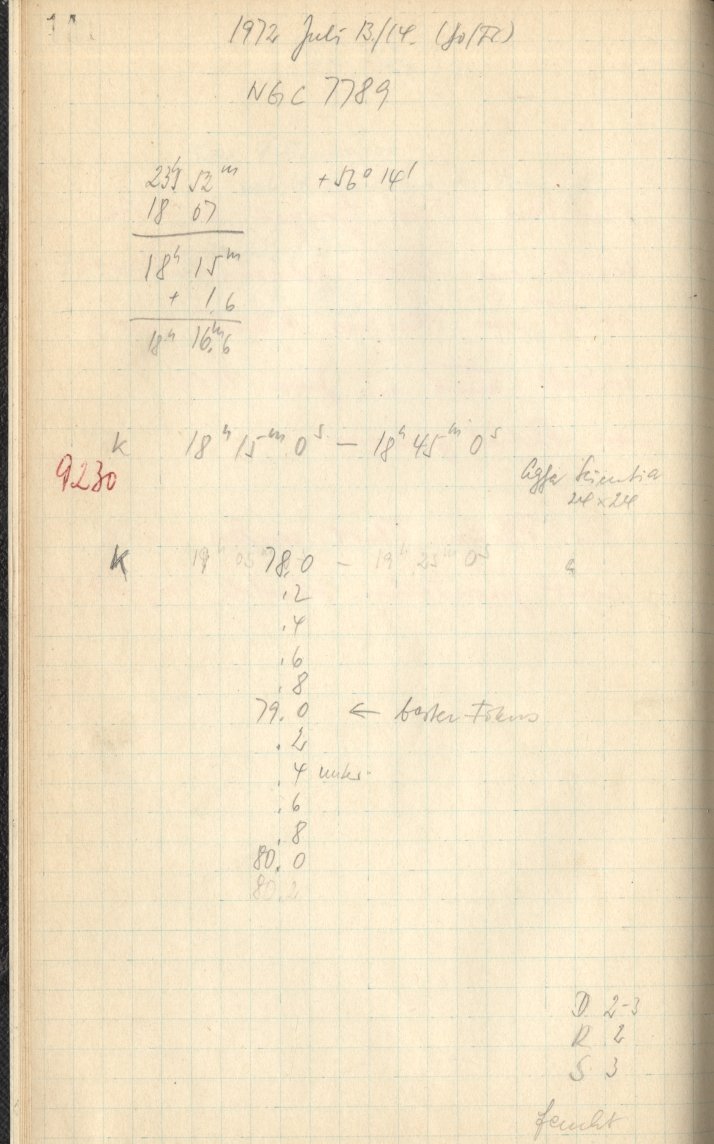 1972 Juli 13/14.
NGC 7789
23h 52m +56° 14'
18 07
18h 15m
+ 1.6
18h 16m.6
K 18h 15m 0s — 18h 45m 0s
9230
Agfa Scientia
24 × 24
K 19h 05 78.0 — 19h 25m 0s
.2
.4
.6
.8
79.0 ← bester Fokus
.2
.4
.6
.8
80.0
80.2
D. 2-3
R 2
S 3
feucht